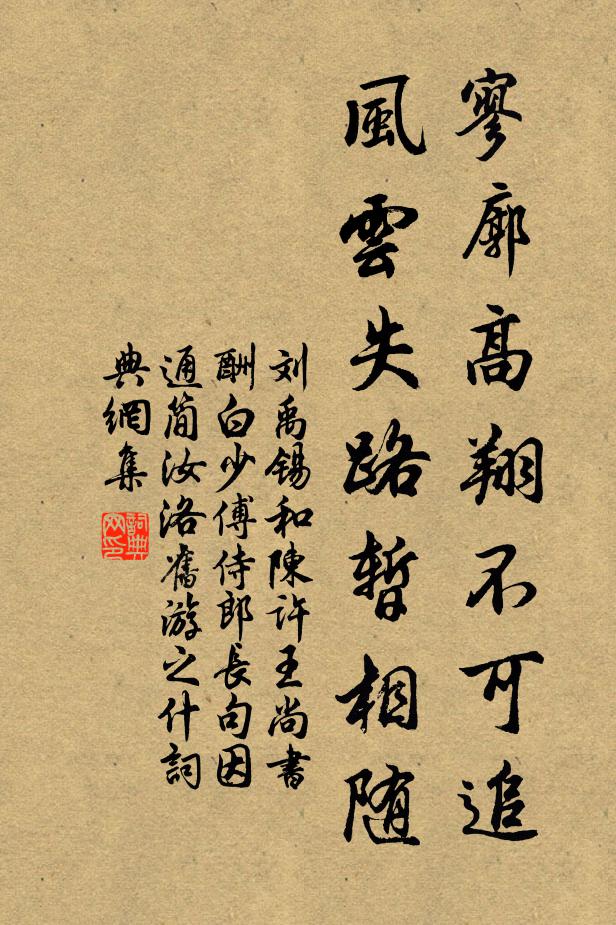 寥廓高翔不可追
風雲失路暫相随
刘禹锡和陳許王尚書
酬白少傅侍郎長句因
通简汝洛舊游之什詞
典網集
詞典
网印